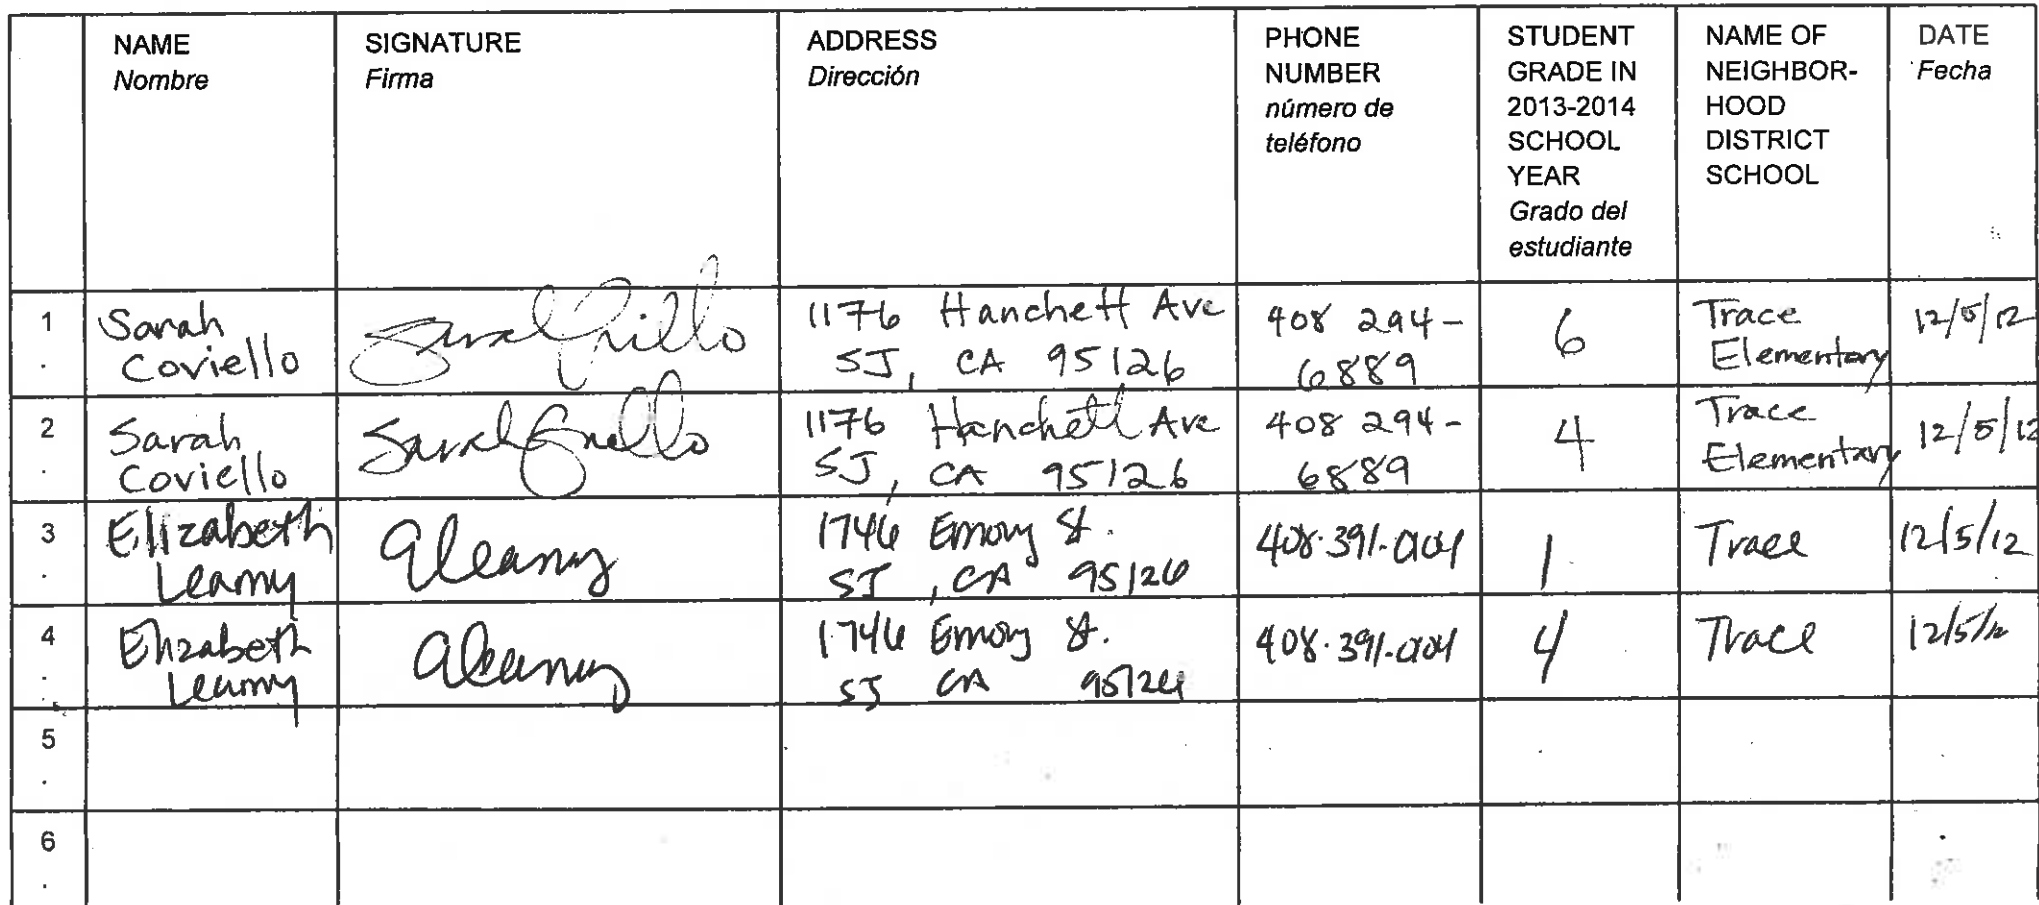 NAME
Nombre
SIGNATURE
Firma
ADDRESS
Dirección
PHONE
NUMBER
número de
teléfono
STUDENT
GRADE IN
2013-2014
SCHOOL
YEAR
Grado del
estudiante
NAME OF
NEIGHBOR-
HOOD
DISTRICT
SCHOOL
DATE
Fecha
1.
Sarah
Coviello
1176 Hanchett Ave
SJ, CA 95126
408 294-
6889
6
Trace
Elementary
12/5/12
2.
Sarah
Coviello
1176 Hanchett Ave
SJ, CA 95126
408 294-
6889
4
Trace
Elementary
12/5/12
3.
Elizabeth
Leamy
1746 Emory St.
SJ, CA 95126
408.391.
1
Trace
12/5/12
4.
Elizabeth
Leamy
1746 Emory St.
SJ CA 95126
408.391.
4
Trace
12/5/12
5.
6.